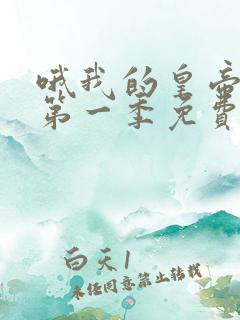 哦我的皇帝
第一季免費
白天1
未经同意禁止转载